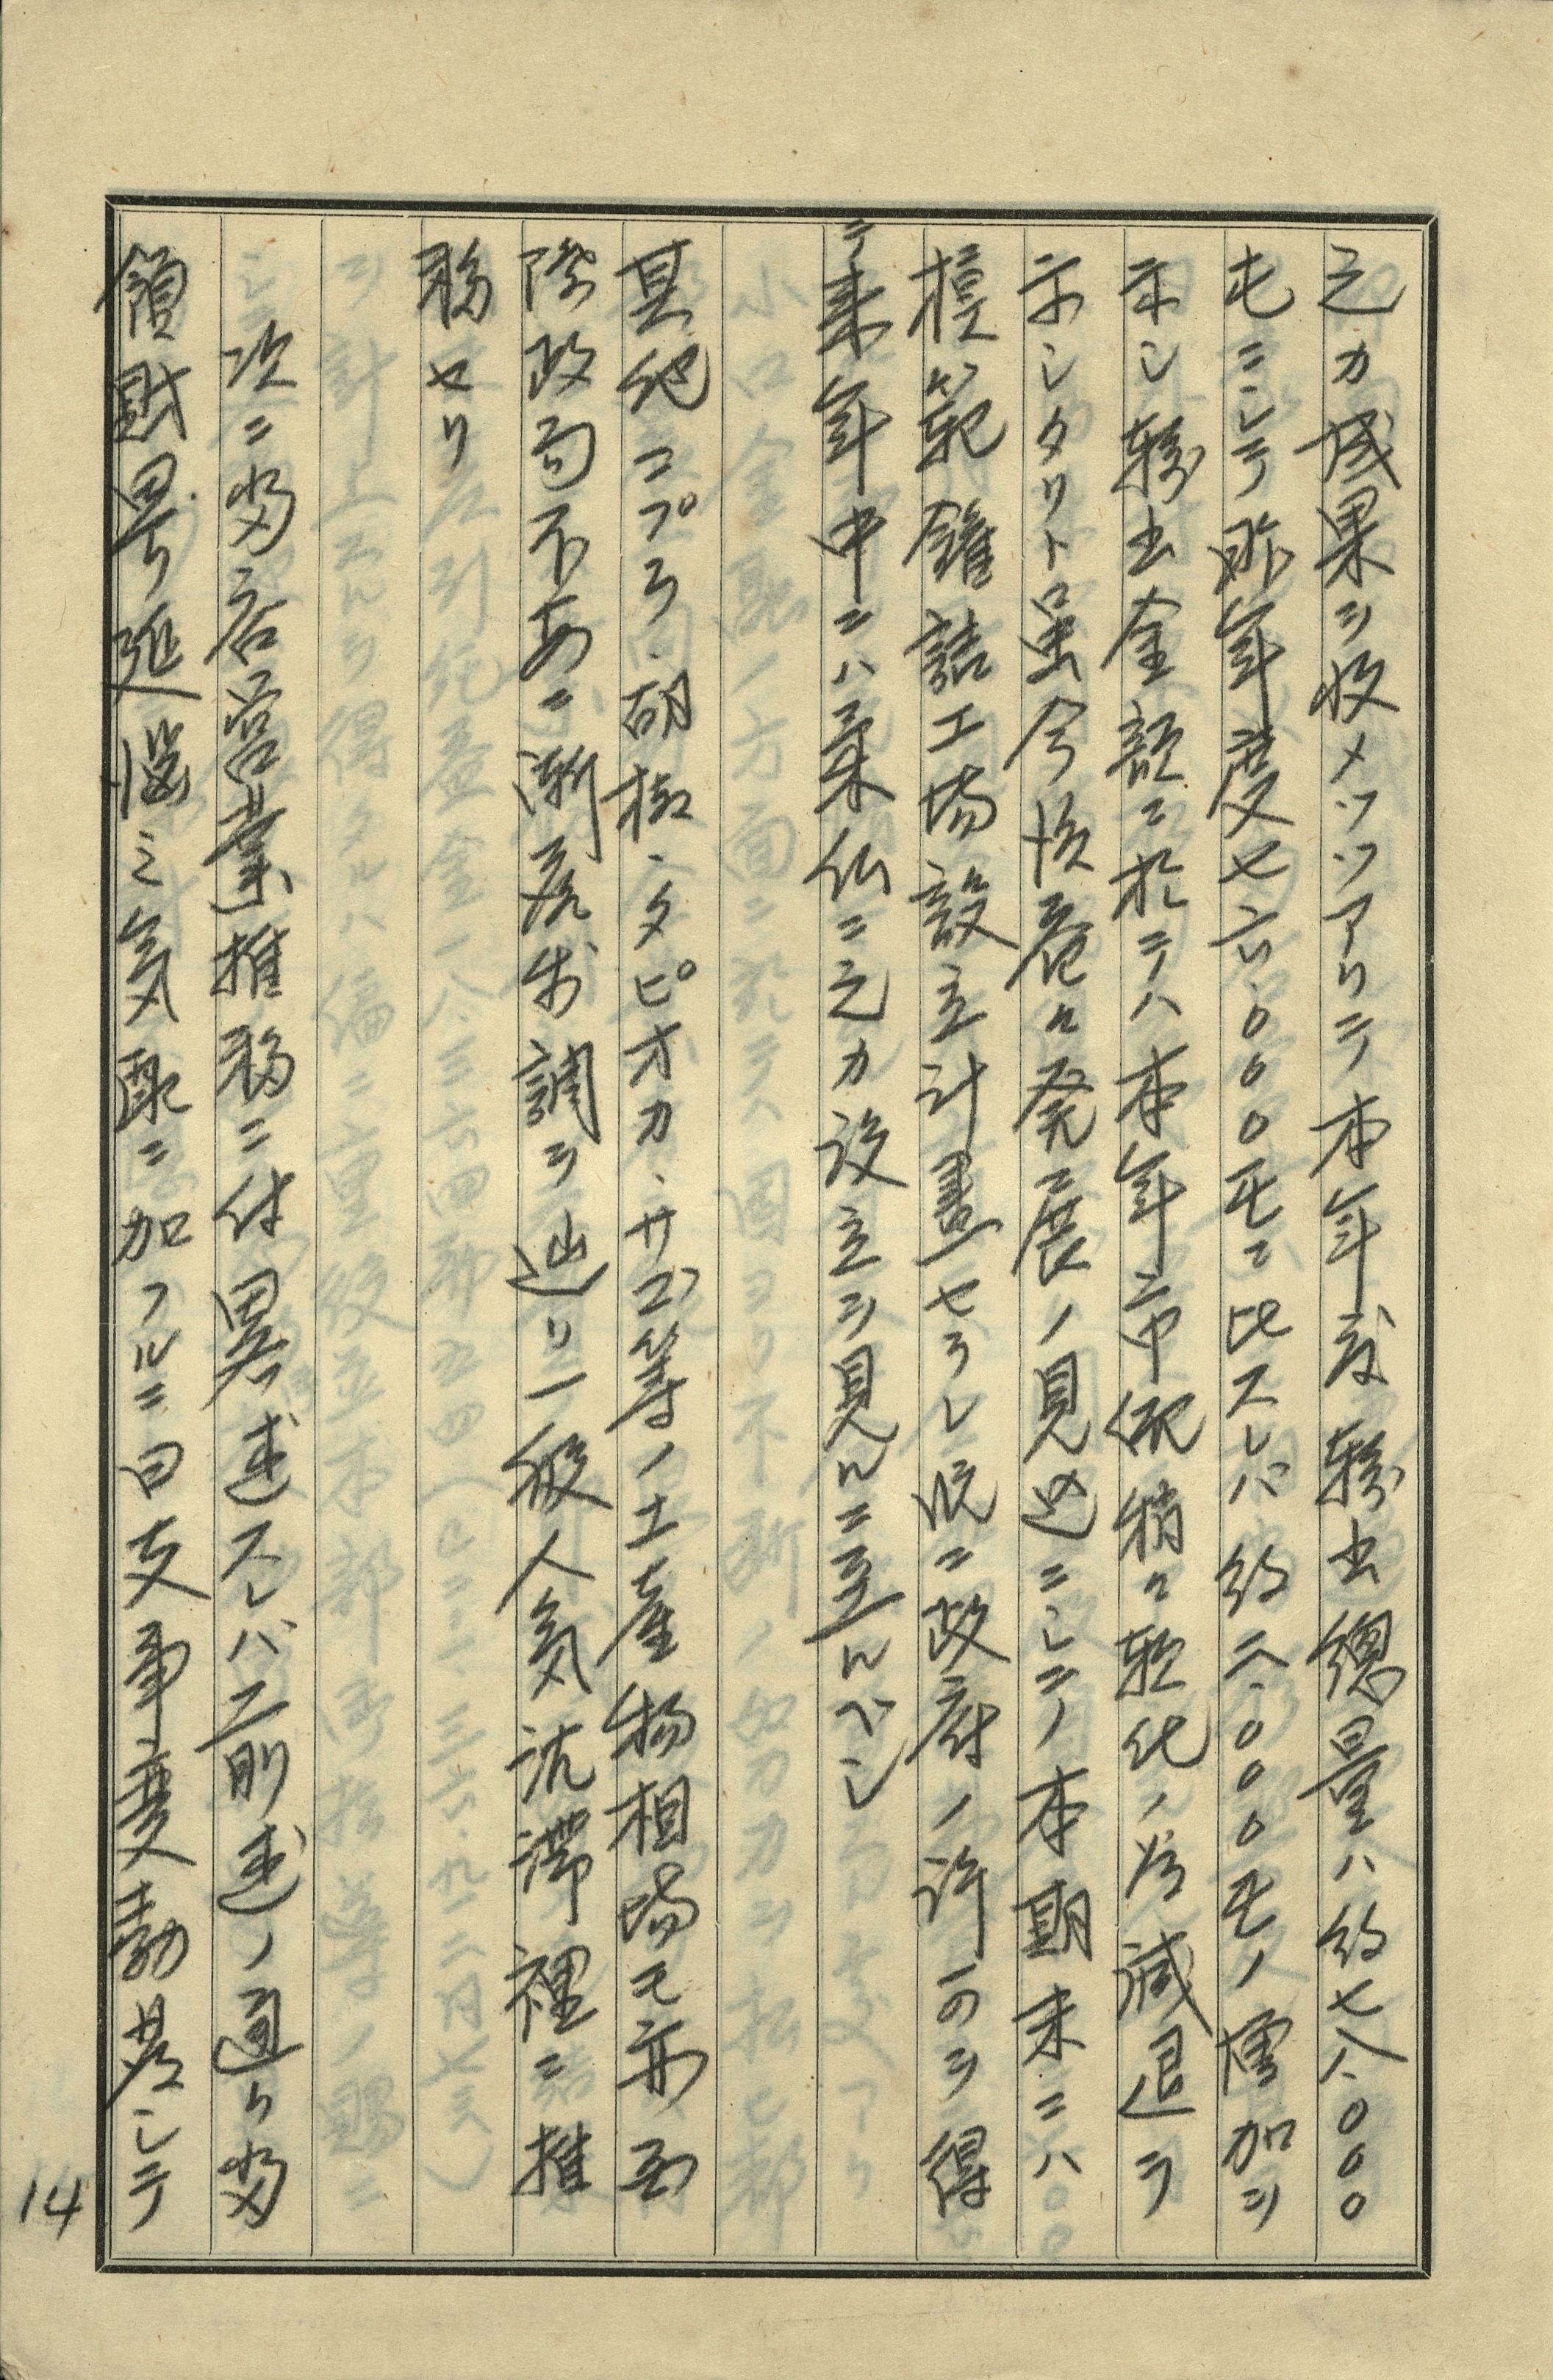 之カ成果ヲ收メツツアリテ本年度輸出總量ハ約七八、〇〇〇
屯ニシテ昨年度七六、〇〇〇屯ニ比スレバ約二、〇〇〇屯ノ増加ヲ
示シ輸出金額ニ於テハ本年中価稍々軟化ノ為減退ヲ
示シタリト雖今後益々発展ノ見込ニシテ本期末ニハ
模範罐詰工場設立計畫セラレ既ニ政府ノ許可ヲ得
テ来年中ニハ南仏ニ之カ設立ヲ見ルニ至ルベシ
其他コプラ、胡椒、タピオカ、サゴ等ノ土産物相場モ亦西
際政局不安ニ漸落歩調ヲ辿リ一般人気沈滞裡ニ推
移セリ
次ニ當店営業推移ニ付畧述スレバ前述ノ通リ當
領財界ノ延悩ミ気配ニ加フルニ日支事変勃発シテ
14